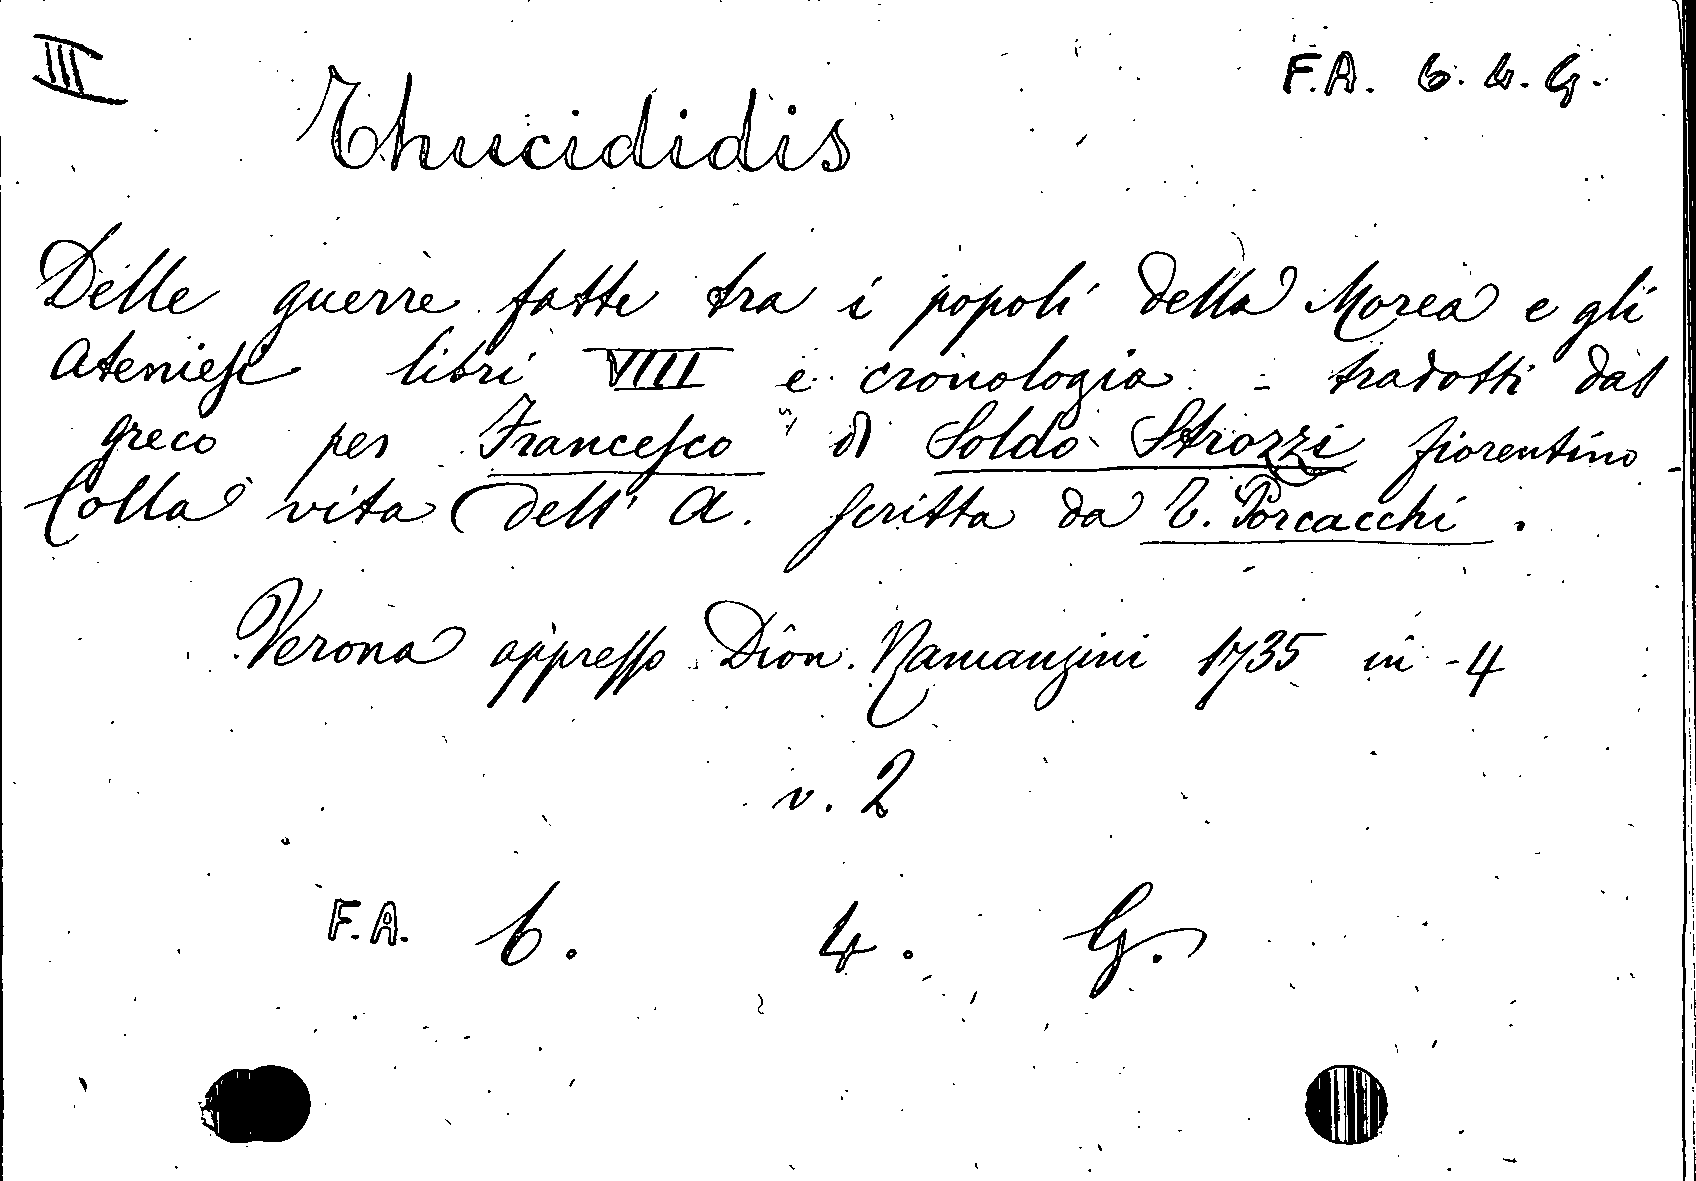 III
F.A. 6. 4. G.
Thucididis
Delle guerre fatte tra i popoli della Morea e gli
Ateniesi libri VIII e cronologia - tradotti dal
greco per Francesco di Soldo Strozzi fiorentino -
Colla vita dell' A. scritta da T. Porcacchi.
Verona appresso Dion. Ramanzini 1735 in -4
v. 2
F.A. 6. 4. G.